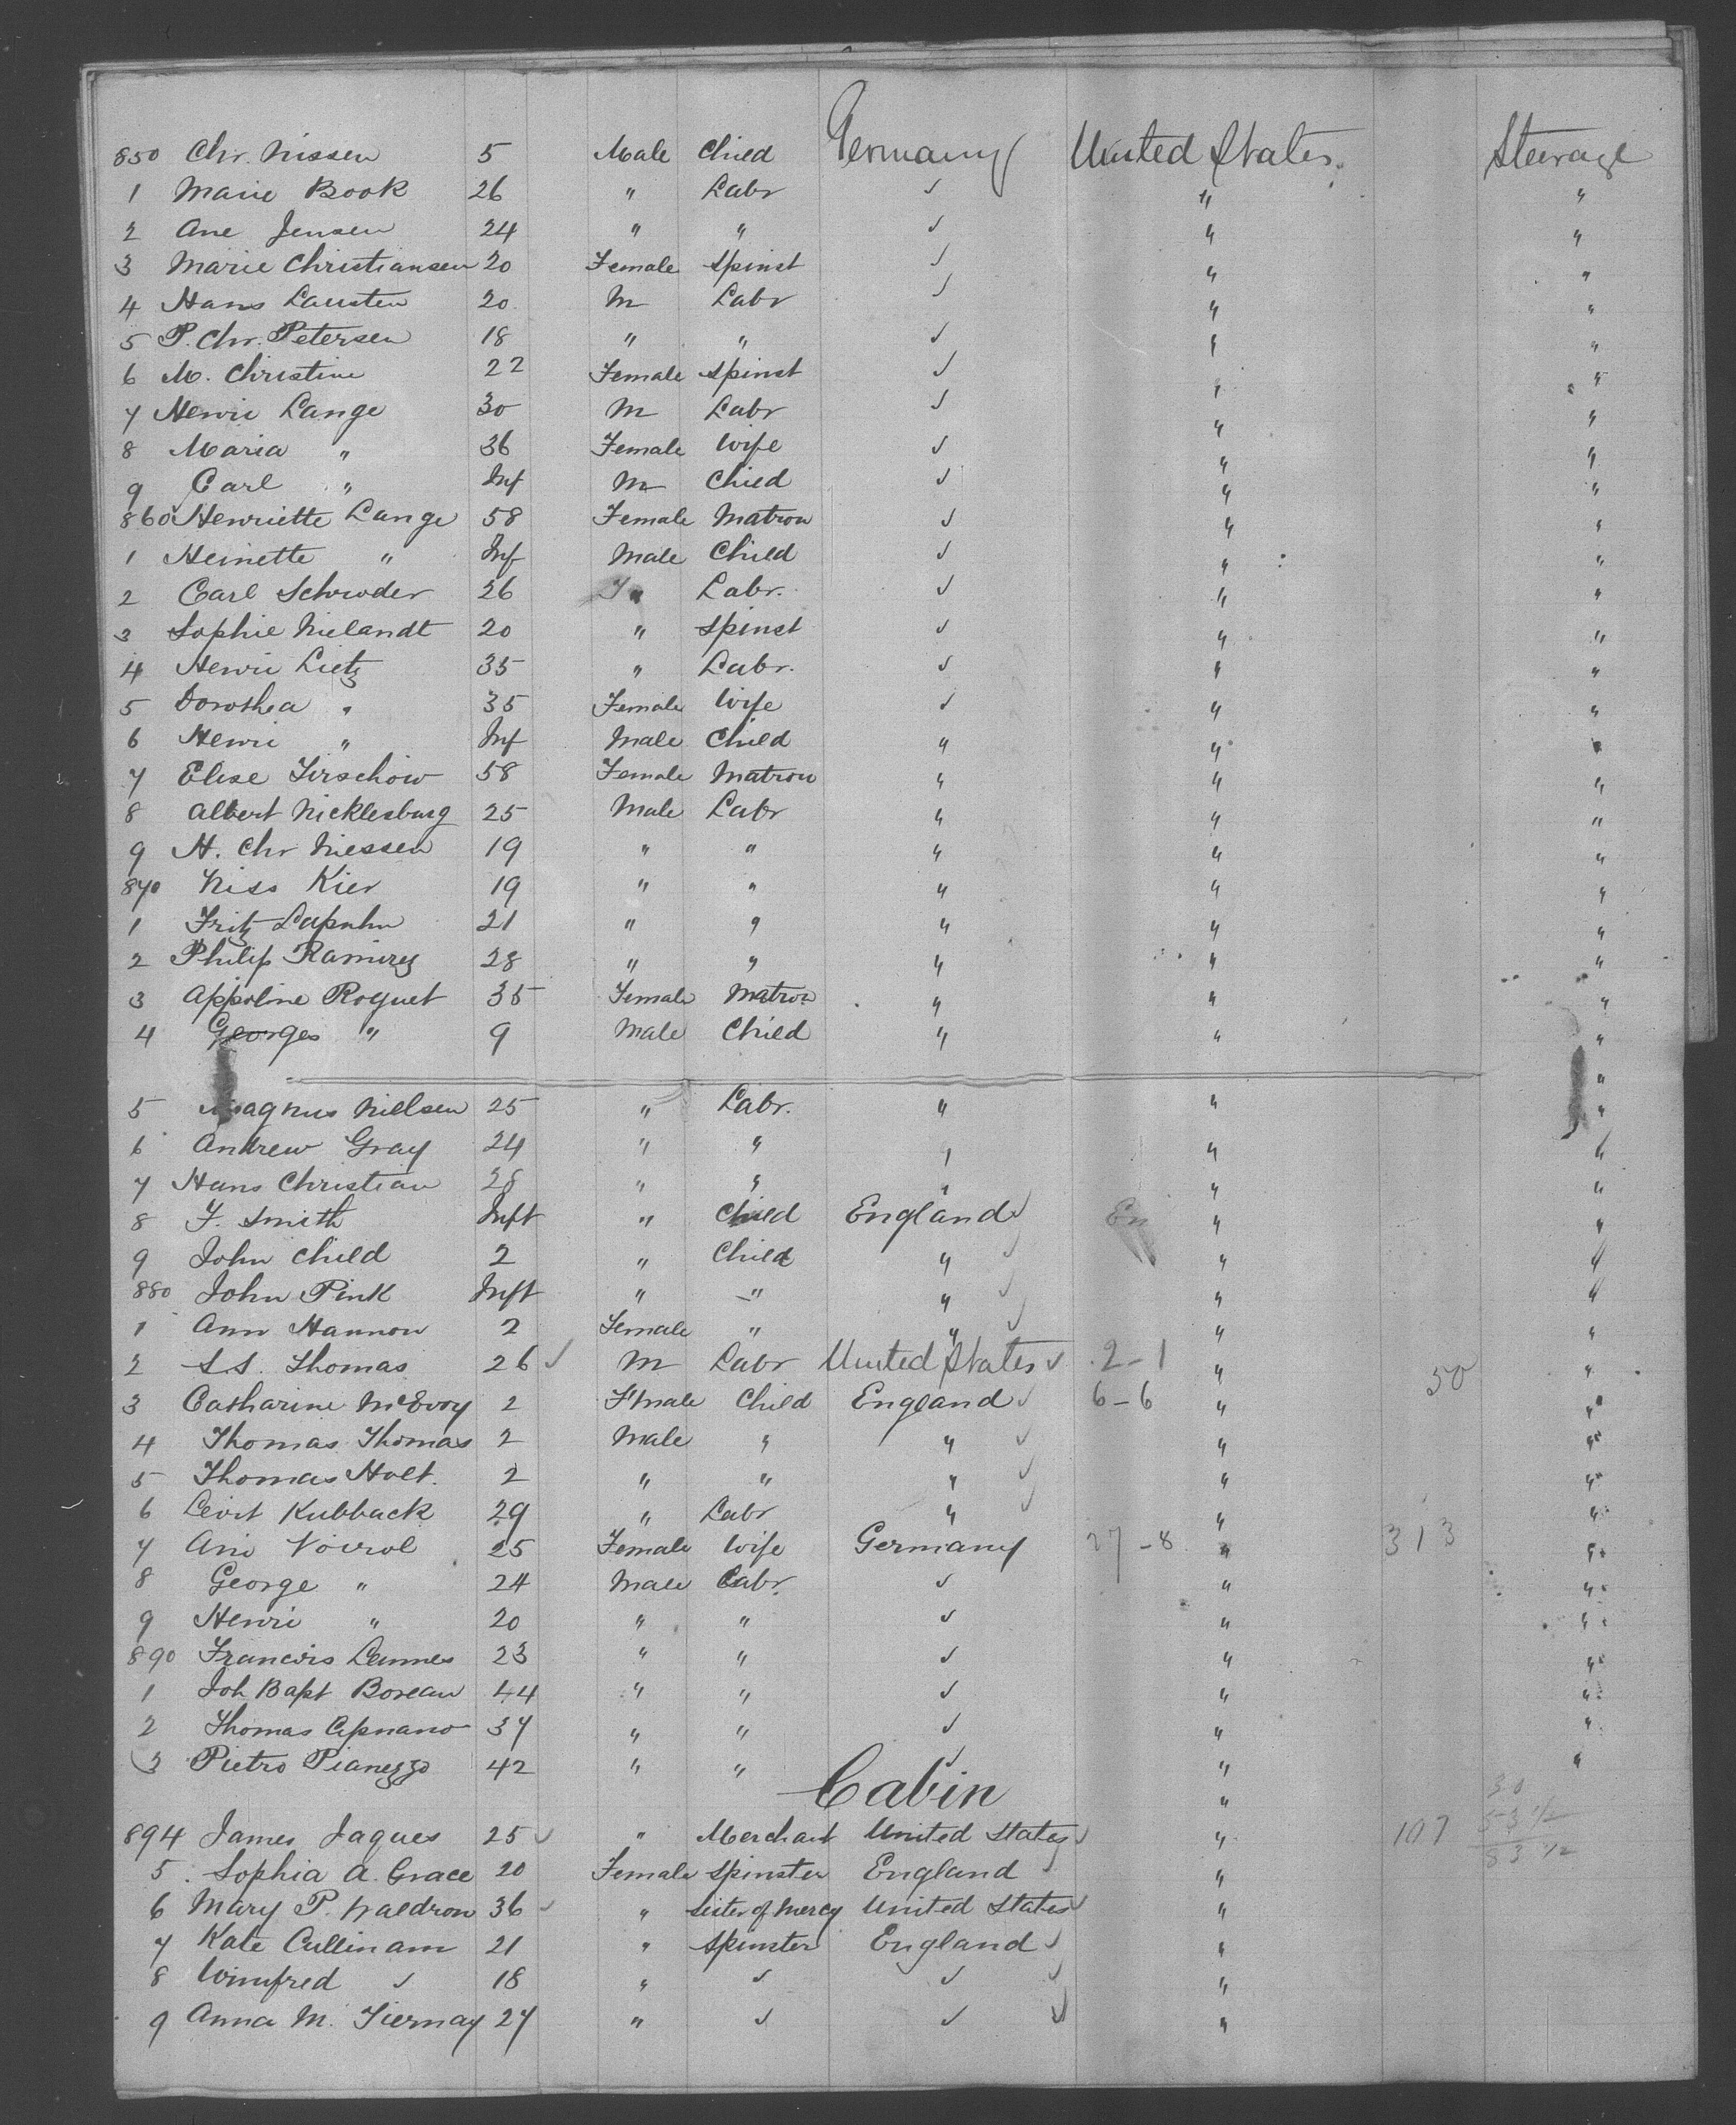 850 Chr. Nissen 5 Male Child Germany United States. Steerage
1 Marie Book 26 " Labr ✓ " "
2 Ane Jensen 24 " " ✓ " "
3 Marie Christiansen 20 Female Spinst ✓ " "
4 Hans Lausten 20 M Labr ✓ " "
5 P. Chr. Petersen 18 " " ✓ " "
6 M. Christine 22 Female Spinst ✓ " "
7 Henri Lange 30 M Labr ✓ " "
8 Maria " 36 Female Wife ✓ " "
9 Carl " Inf M Child ✓ " "
860 Henriette Lange 58 Female Matron ✓ " "
1 Heinette " Inf Male Child ✓ " "
2 Carl Schroder 26 " Labr. ✓ " "
3 Sophie Nielandt 20 " Spinst ✓ " "
4 Henri Lietz 35 " Labr. ✓ " "
5 Dorothea " 35 Female Wife ✓ " "
6 Henri " Inf Male Child " " "
7 Elise Tirschow 58 Female Matron " " "
8 Albert Nicklesburg 25 Male Labr " " "
9 H. Chr Niessen 19 " " " " "
870 Niss Kier 19 " " " " "
1 Fritz Lapuhn 21 " " " " "
2 Philip Ramirez 28 " " " " "
3 Appoline Roguet 35 Female Matron " " "
4 Georges " 9 Male Child " " "
"
5 Magnus Nielsen 25 " Labr. " " "
6 Andrew Gray 24 " " " " "
7 Hans Christian 28 " " " " "
8 F. Smith Inft " Child England ✓ En " "
9 John Child 2 " Child " ✓ " "
880 John Pink Inft " " " ✓ " "
1 Ann Hannon 2 Female " " ✓ " "
2 S.S. Thomas 26 ✓ M Labr United States ✓ 2-1 " 50 "
3 Catharine McEvoy 2 Female Child England ✓ 6-6 " "
4 Thomas Thomas 2 Male " " ✓ " "
5 Thomas Holt. 2 " " " ✓ " "
6 Levit Kubback 29 " Labr " ✓ " "
7 Ani Voirol 25 Female Wife Germany 27-8 " 313 "
8 George " 24 Male Labr ✓ " "
9 Henri " 20 " " ✓ " "
890 Francois Lannes 23 " " ✓ " "
1 Joh Bapt Boreau 44 " " ✓ " "
2 Thomas Cipnano 37 " " ✓ " "
3 Pietro Pianezzo 42 " " ✓ " "
Cabin " 30
894 James Jaques 25 ✓ " Merchant United States ✓ " 107 53 1/2
83 1/2
5 Sophia A. Grace 20 Female Spinster England ✓ "
6 Mary P. Waldron 36 ✓ " Sister of Mercy United States ✓ "
7 Kate Cullinam 21 " Spinster England ✓ "
8 Winifred ✓ 18 " ✓ ✓ ✓ "
9 Anna M. Tiernay 27 " ✓ ✓ ✓ "